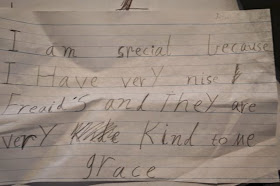 I am special because
I Have very nise
Freaid's and They are
very Kind to me
grace